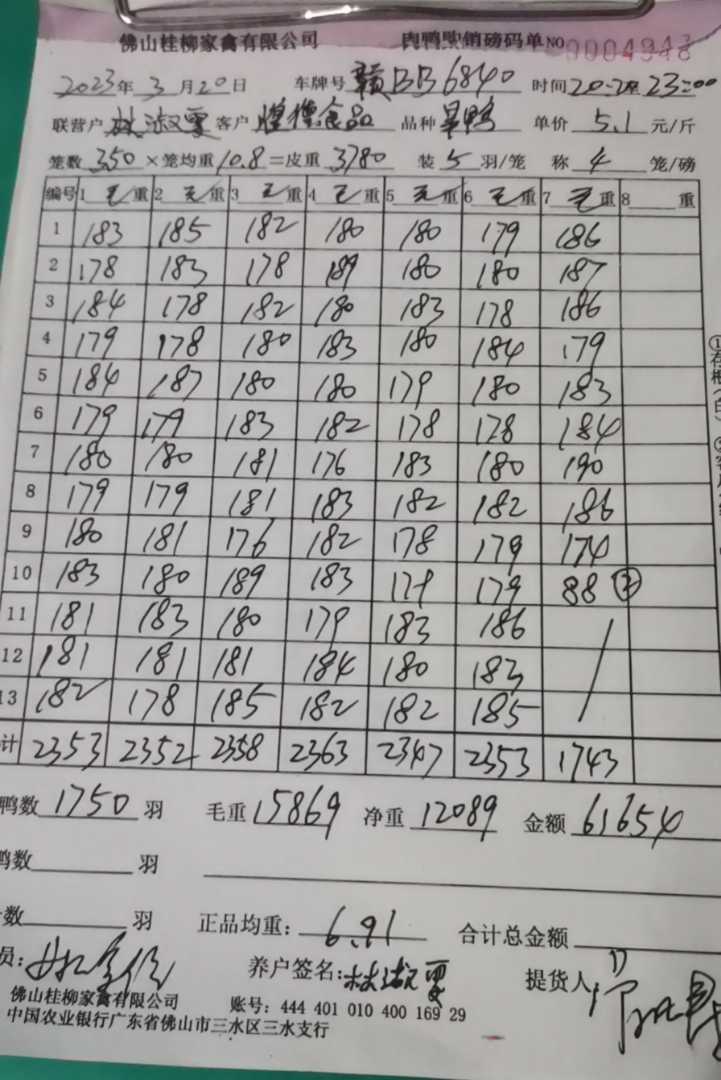 佛山桂柳家禽有限公司 肉鸭购销磅码单 NO 9004948
2023年 3月20日 车牌号 赣BB6840 时间 23:00
联营户 林淑雯 客户 煌煌食品 品种 单价 5.1 元/斤
笼数 350 ×笼均重 10.8 =皮重 3780 装 5 羽/笼 称 4 笼/磅
编号 1 毛重 2 毛重 3 毛重 4 毛重 5 毛重 6 毛重 7 毛重 8 重
1 183 185 182 180 180 179 186
2 178 183 178 189 180 180 187
3 184 178 182 180 183 178 186
4 179 178 180 183 180 184 179
5 184 187 180 180 179 180 183
6 179 179 183 182 178 178 184
7 180 180 181 176 183 180 190
8 179 179 181 183 182 182 186
9 180 181 176 182 178 179 174
10 183 180 189 183 179 179 88 ②
11 181 183 180 179 183 186
12 181 181 181 184 180 183
13 182 178 185 182 182 185
计 2353 2352 2358 2363 2347 2353 1743
鸭数 1750 羽 毛重 15869 净重 12089 金额 61654
鸭数 羽
数 羽 正品均重: 6.91 合计总金额
员: 养户签名: 林淑雯 提货人
佛山桂柳家禽有限公司 账号: 444 401 010 400 169 29
中国农业银行广东省佛山市三水区三水支行